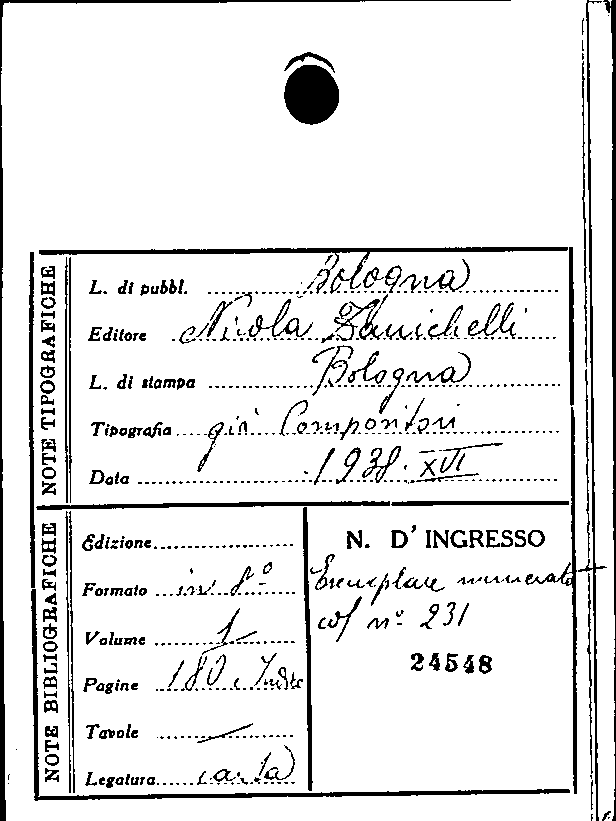 NOTE TIPOGRAFICHE
L. di pubbl. Bologna
Editore Nicola Zanichelli
L. di stampa Bologna
Tipografia già Compositori
Data 1938. XVI
NOTE BIBLIOGRAFICHE
Edizione
Formato in 8º
Volume 1
Pagine 180, Indice
Tavole —
Legatura carta
N. D'INGRESSO
Esemplare numerato
col nº 231
24548